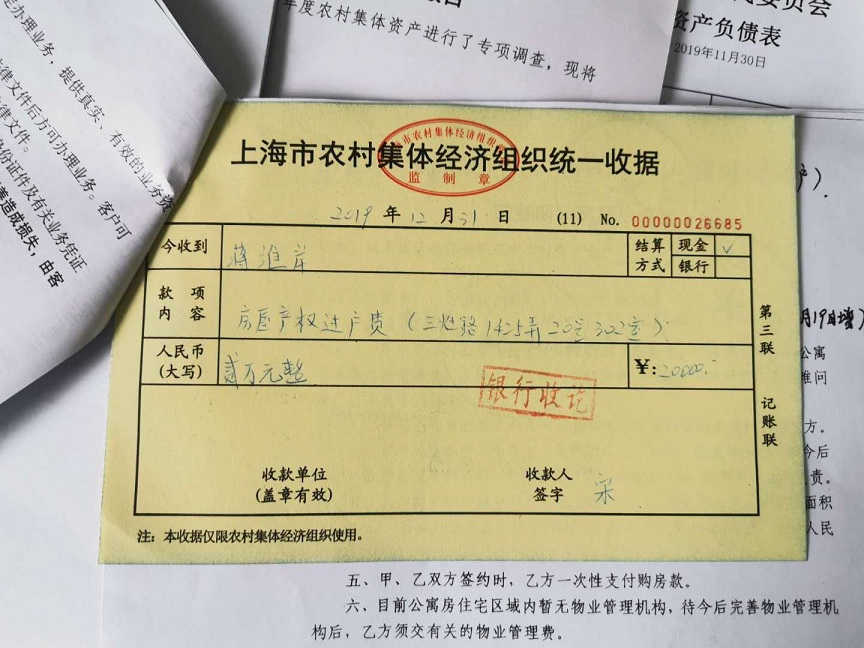 办理业务，提供真实、有效的业务资
律文件后方可办理业务。客户可
律文件。
身份证件及有关业务凭证
造成损失，由客
年度农村集体资产进行了专项调查，现将
委员会
资产负债表
2019年11月30日
上海市农村集体经济组织统一收据
监制章
2019年12月31日 (11) No. 00000026685
今收到 蒋淮岸 结算方式 现金 √
银行
款项内容 房屋产权过户费（三林路1425弄20号302室）
人民币(大写) 贰万元整 ¥:20000.-
银行收讫
收款单位 收款人
(盖章有效) 签字
第三联 记账联
注：本收据仅限农村集体经济组织使用。
户）
月19日增）
公寓
方。
今后
责。
面积
人民
五、甲、乙双方签约时，乙方一次性支付购房款。
六、目前公寓房住宅区域内暂无物业管理机构，待今后完善物业管理机
构后，乙方须交有关的物业管理费。